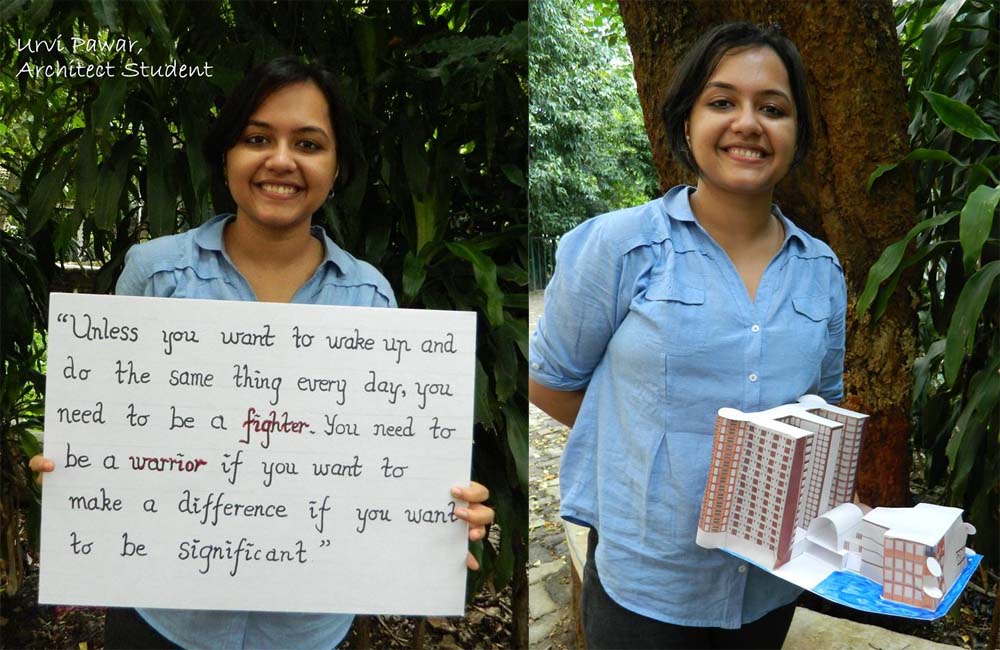 Urvi Pawar,
Architect Student
“Unless you want to wake up and
do the same thing every day, you
need to be a fighter. You need to
be a warrior if you want to
make a difference if you want
to be significant”